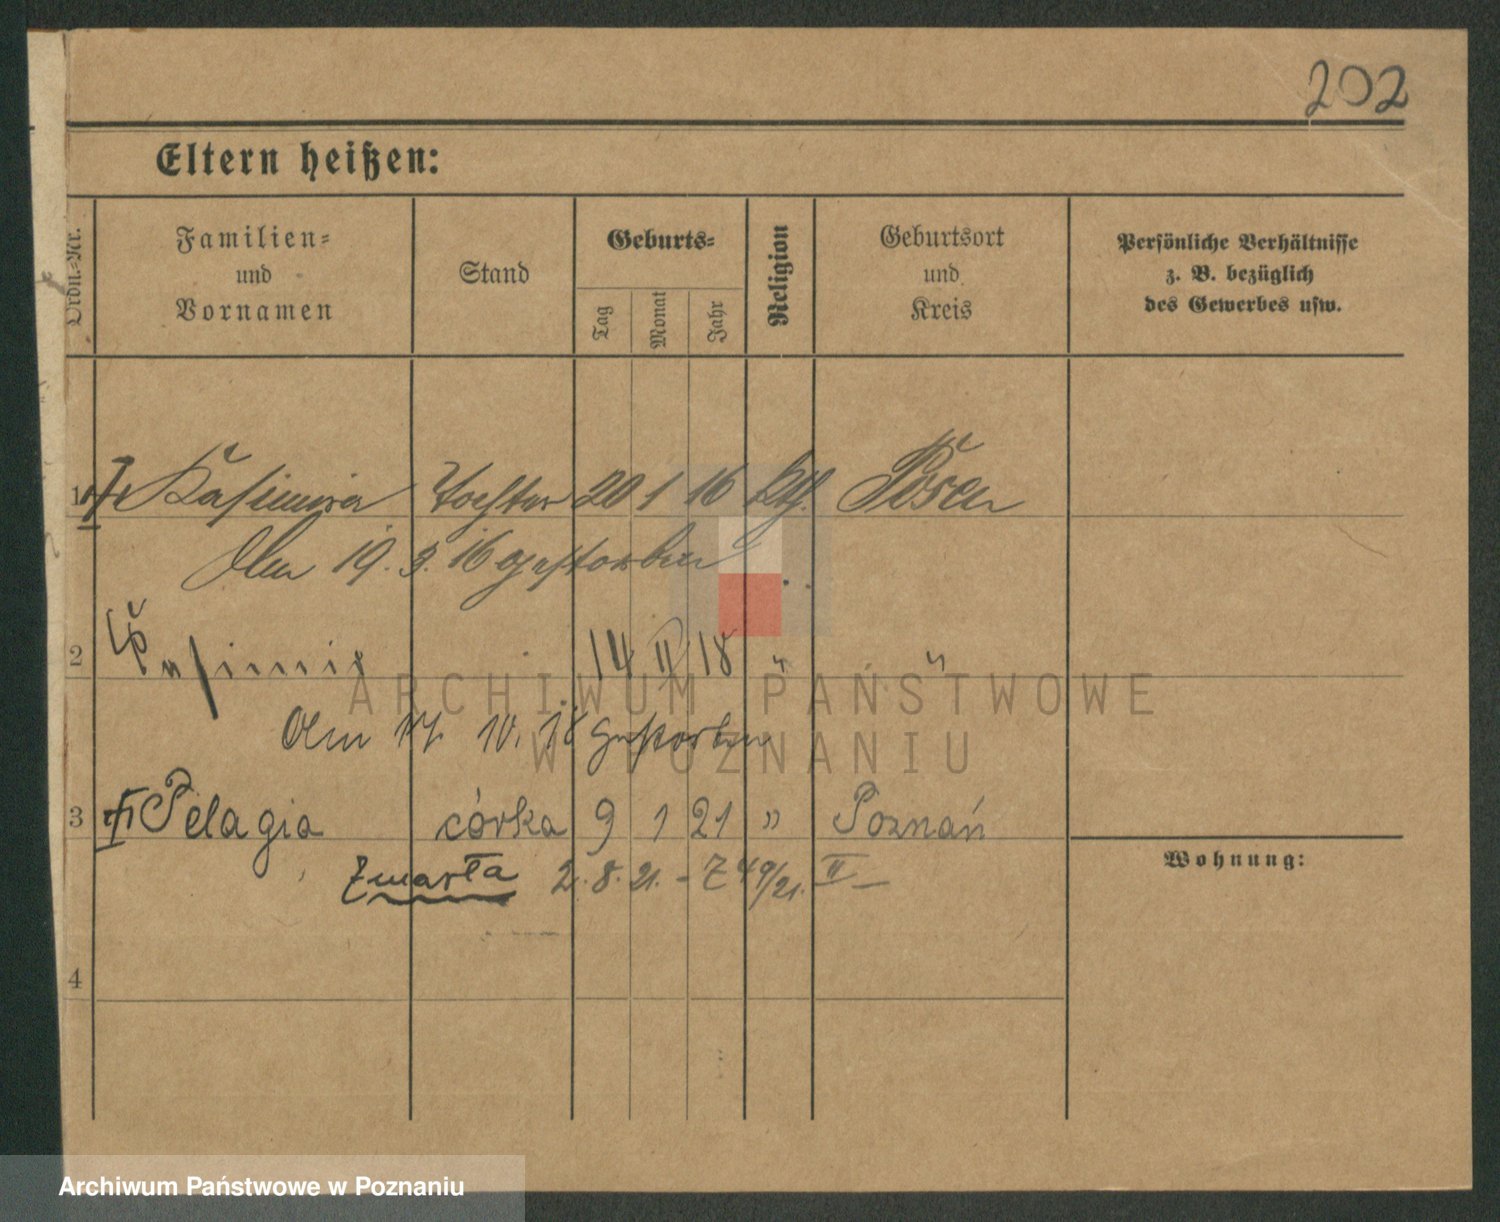 202
Eltern heißen:
Ordn.-Nr.
Familien- und Vornamen
Stand
Geburts-
Tag
Monat
Jahr
Religion
Geburtsort und Kreis
Persönliche Verhältnisse z. B. bezüglich des Gewerbes usw.
1 Kasimira Tochter 20 1 16 kth. Posen
Am 19. 3. 16 gestorben
2 Kasimir 14 II 18 " "
Am 17. 10. 18 gestorben
3 Pelagia córka 9 1 21 " Poznań
Zmarła 2. 8. 21. - Z 49/21. II -
Wohnung:
4
ARCHIWUM PAŃSTWOWE
W POZNANIU
Archiwum Państwowe w Poznaniu